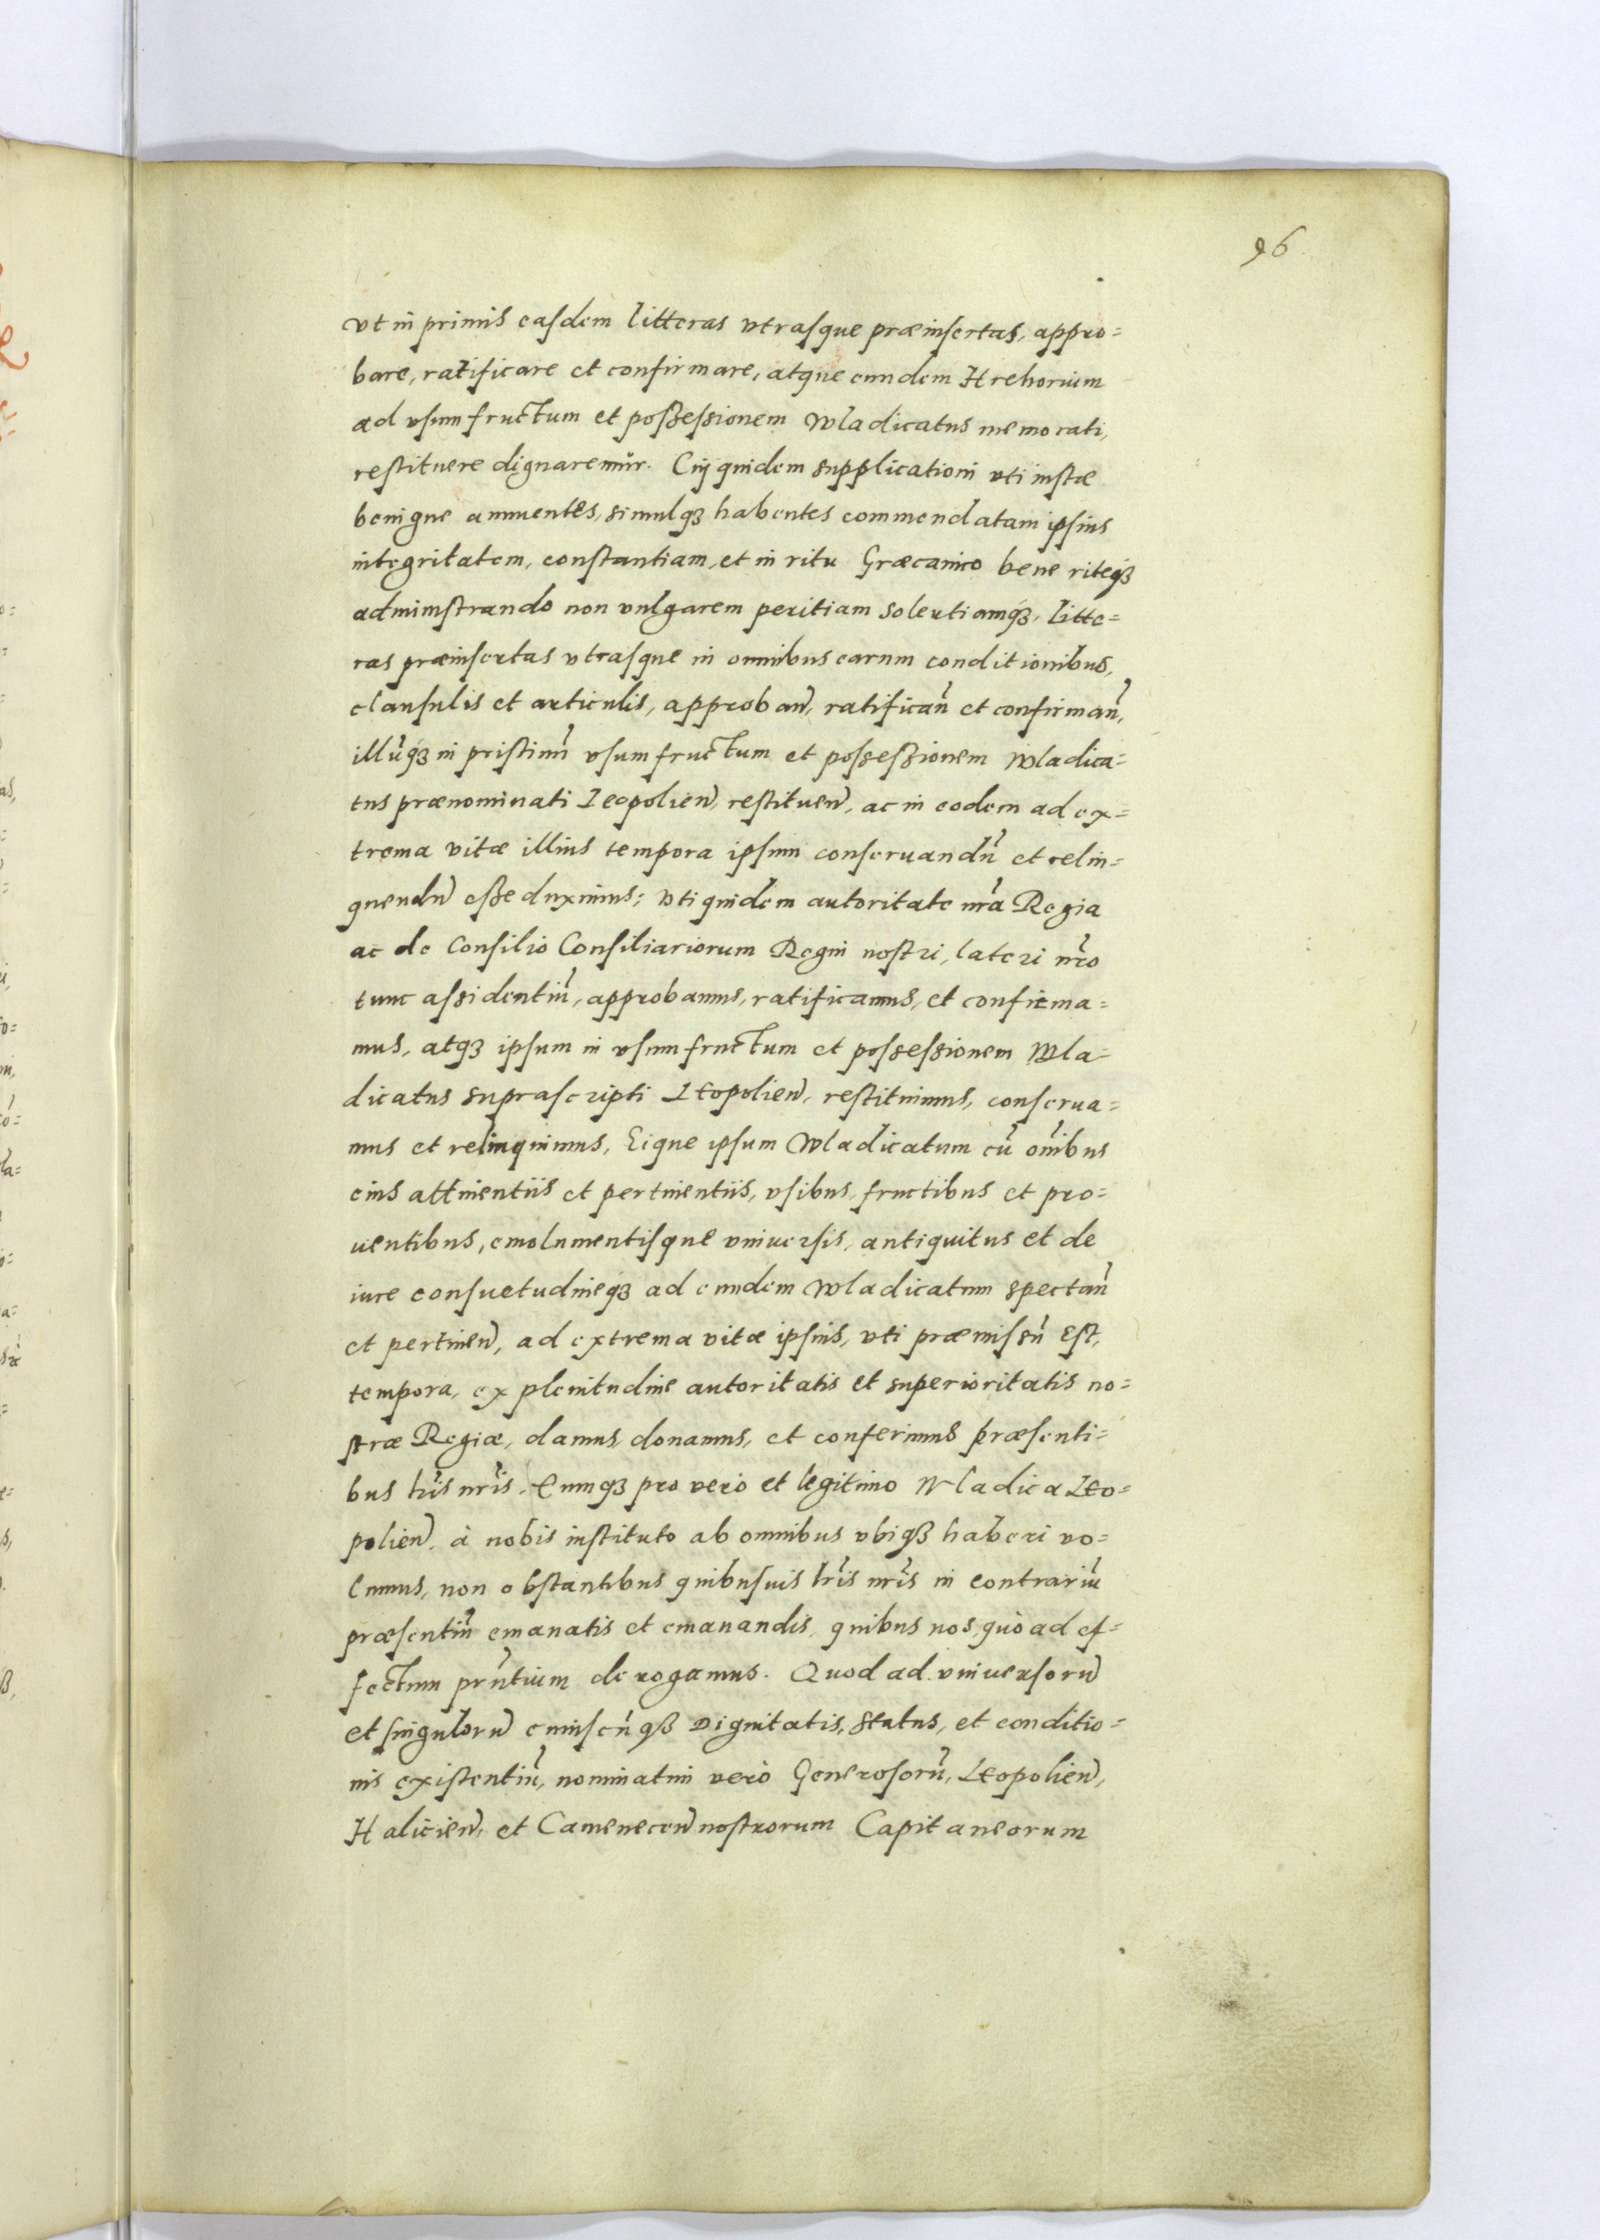 96
vt in primis easdem litteras vtrasque præinsertas, appro=
bare, ratificare et confirmare, atque eundem Hrehorium
ad vsumfructum et possessionem Wladicatus memorati,
restituere dignaremur. Cui quidem supplicationi vti iustæ
benigne annuentes, simulqȝ habentes commendatam ipsius
integritatem, constantiam, et in ritu Græcanico bene riteqȝ
administrando non vulgarem peritiam solertiamqȝ, litte=
ras præinsertas vtrasque in omnibus earum conditionibus,
clausulis et articulis, approban̄, ratifican̄ et confirman̄,
illūqȝ in pristinū vsumfructum et possessionem Wladica=
tus prænominati Leopolien̄, restituen̄, ac in eodem ad ex=
trema vitæ illius tempora ipsum conseruandū et relin=
quendū esse duximus: vti quidem autoritate nr̄a Regia
ac de Consilio Consiliariorum Regni nostri, lateri nr̄o
tunc assidentiū, approbamus, ratificamus, et confirma=
mus, atqȝ ipsum in vsumfructum et possessionem Wla=
dicatus suprascripti Leopolien̄, restituimus, conserua=
mus et relinquimus, Eique ipsum Wladicatum cū om̄ibus
eius attinentiis et pertinentiis, vsibus, fructibus et pro=
uentibus, emolumentisque vniuersis, antiquitus et de
iure consuetudineqȝ ad eundem Wladicatum spectan̄
et pertinen̄, ad extrema vitæ ipsius, vti præmissū Est,
tempora, ex plenitudine autoritatis et superioritatis no=
stræ Regiæ, damus donamus, et conferimus præsenti=
bus lr̄is nr̄is. Eumqȝ pro vero et legitimo Wladica Leo=
polien̄. à nobis instituto ab omnibus vbiqȝ haberi vo=
lumus, non obstantibus quibusuis lr̄is nr̄is in contrariū
præsentiū emanatis et emanandis, quibus nos, quò ad ef=
fectum pr̄ntium derogamus. Quod ad vniuersorū
et singulorū cuiuscūqȝ Dignitatis, status, et conditio=
nis existentiū, nominatim verò Generosorū, Leopolien̄,
Halicien̄, et Camenecen̄ nostrorum Capitaneorum